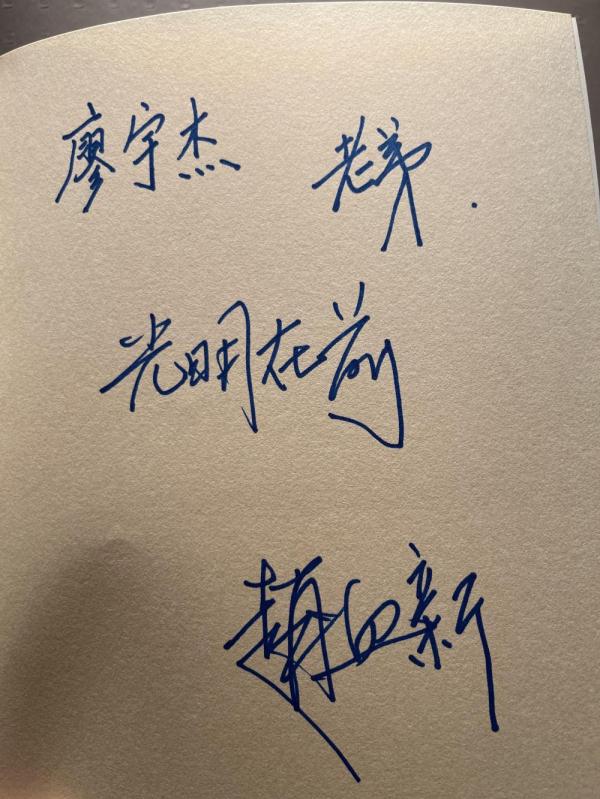 廖宇杰 老弟.
光明在前
趙日新